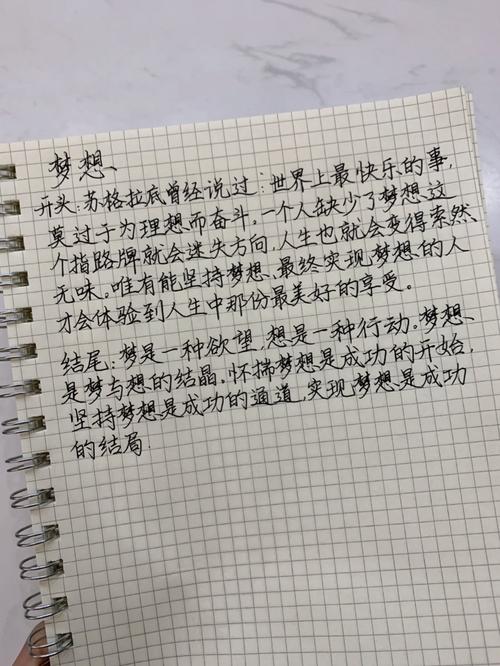 梦想、
开头:苏格拉底曾经说过:世界上最快乐的事,
莫过于为理想而奋斗。一个人缺少了梦想这
个指路牌就会迷失方向,人生也就会变得索然
无味。唯有能坚持梦想、最终实现梦想的人
才会体验到人生中那份最美好的享受。
结尾:梦是一种欲望,想是一种行动。梦想、
是梦与想的结晶。怀揣梦想是成功的开始,
坚持梦想是成功的通道,实现梦想是成功
的结局